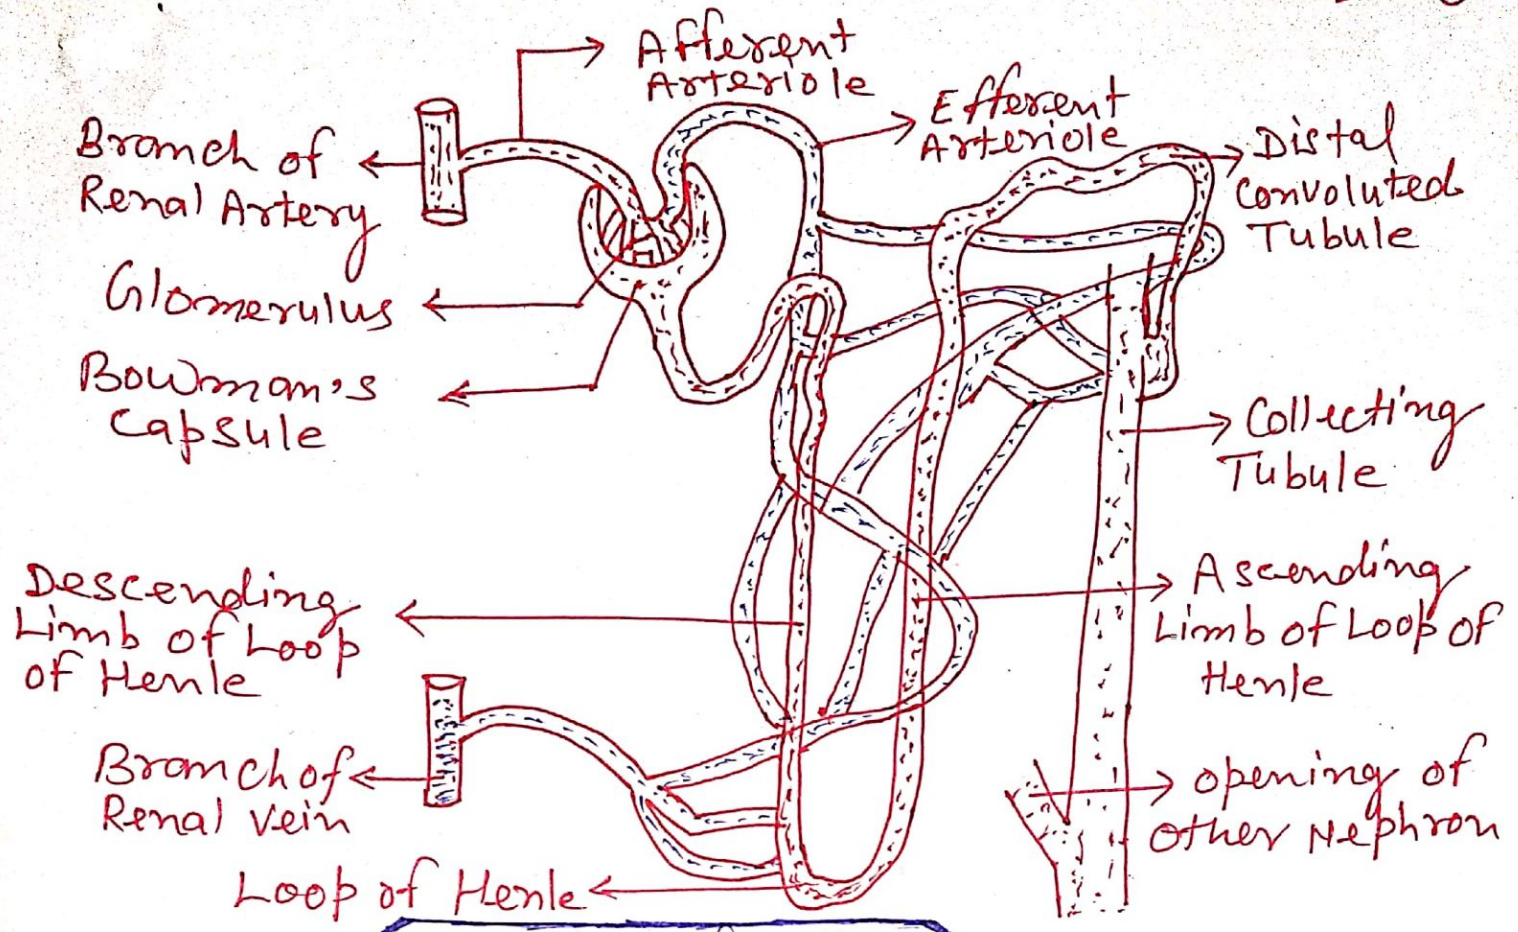 Afferent
Arteriole
Efferent
Arteriole
Distal
Convoluted
Tubule
Branch of
Renal Artery
Glomerulus
Bowman's
Capsule
Collecting
Tubule
Descending
Limb of Loop
of Henle
Ascending
Limb of Loop of
Henle
Branch of
Renal vein
opening of
other Nephron
Loop of Henle